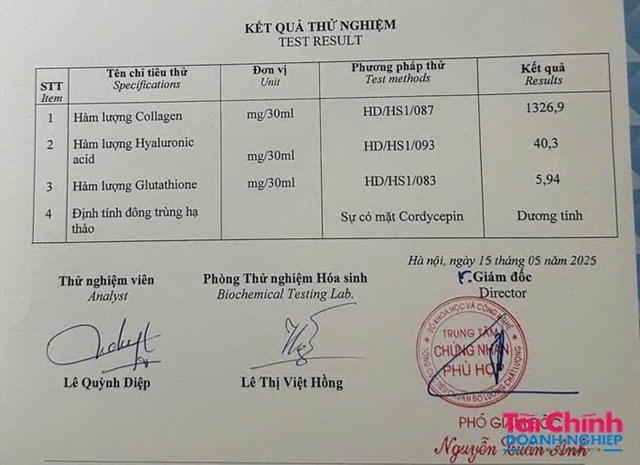 KẾT QUẢ THỬ NGHIỆM
TEST RESULT
STT
Item
Tên chỉ tiêu thử
Specifications
Đơn vị
Unit
Phương pháp thử
Test methods
Kết quả
Results
1 Hàm lượng Collagen mg/30ml HD/HS1/087 1326,9
2 Hàm lượng Hyaluronic acid mg/30ml HD/HS1/093 40,3
3 Hàm lượng Glutathione mg/30ml HD/HS1/083 5,94
4 Định tính đông trùng hạ thảo Sự có mặt Cordycepin Dương tính
Hà nội, ngày 15 tháng 05 năm 2025
Thử nghiệm viên
Analyst
Phòng Thử nghiệm Hóa sinh
Biochemical Testing Lab.
Giám đốc
Director
BỘ KHOA HỌC VÀ CÔNG NGHỆ
TRUNG TÂM
CHỨNG NHẬN
PHÙ HỢP
Lê Quỳnh Diệp
Lê Thị Việt Hồng
PHÓ
Tài Chính
DOANH NGHIỆP
Nguyễn Xuân Anh